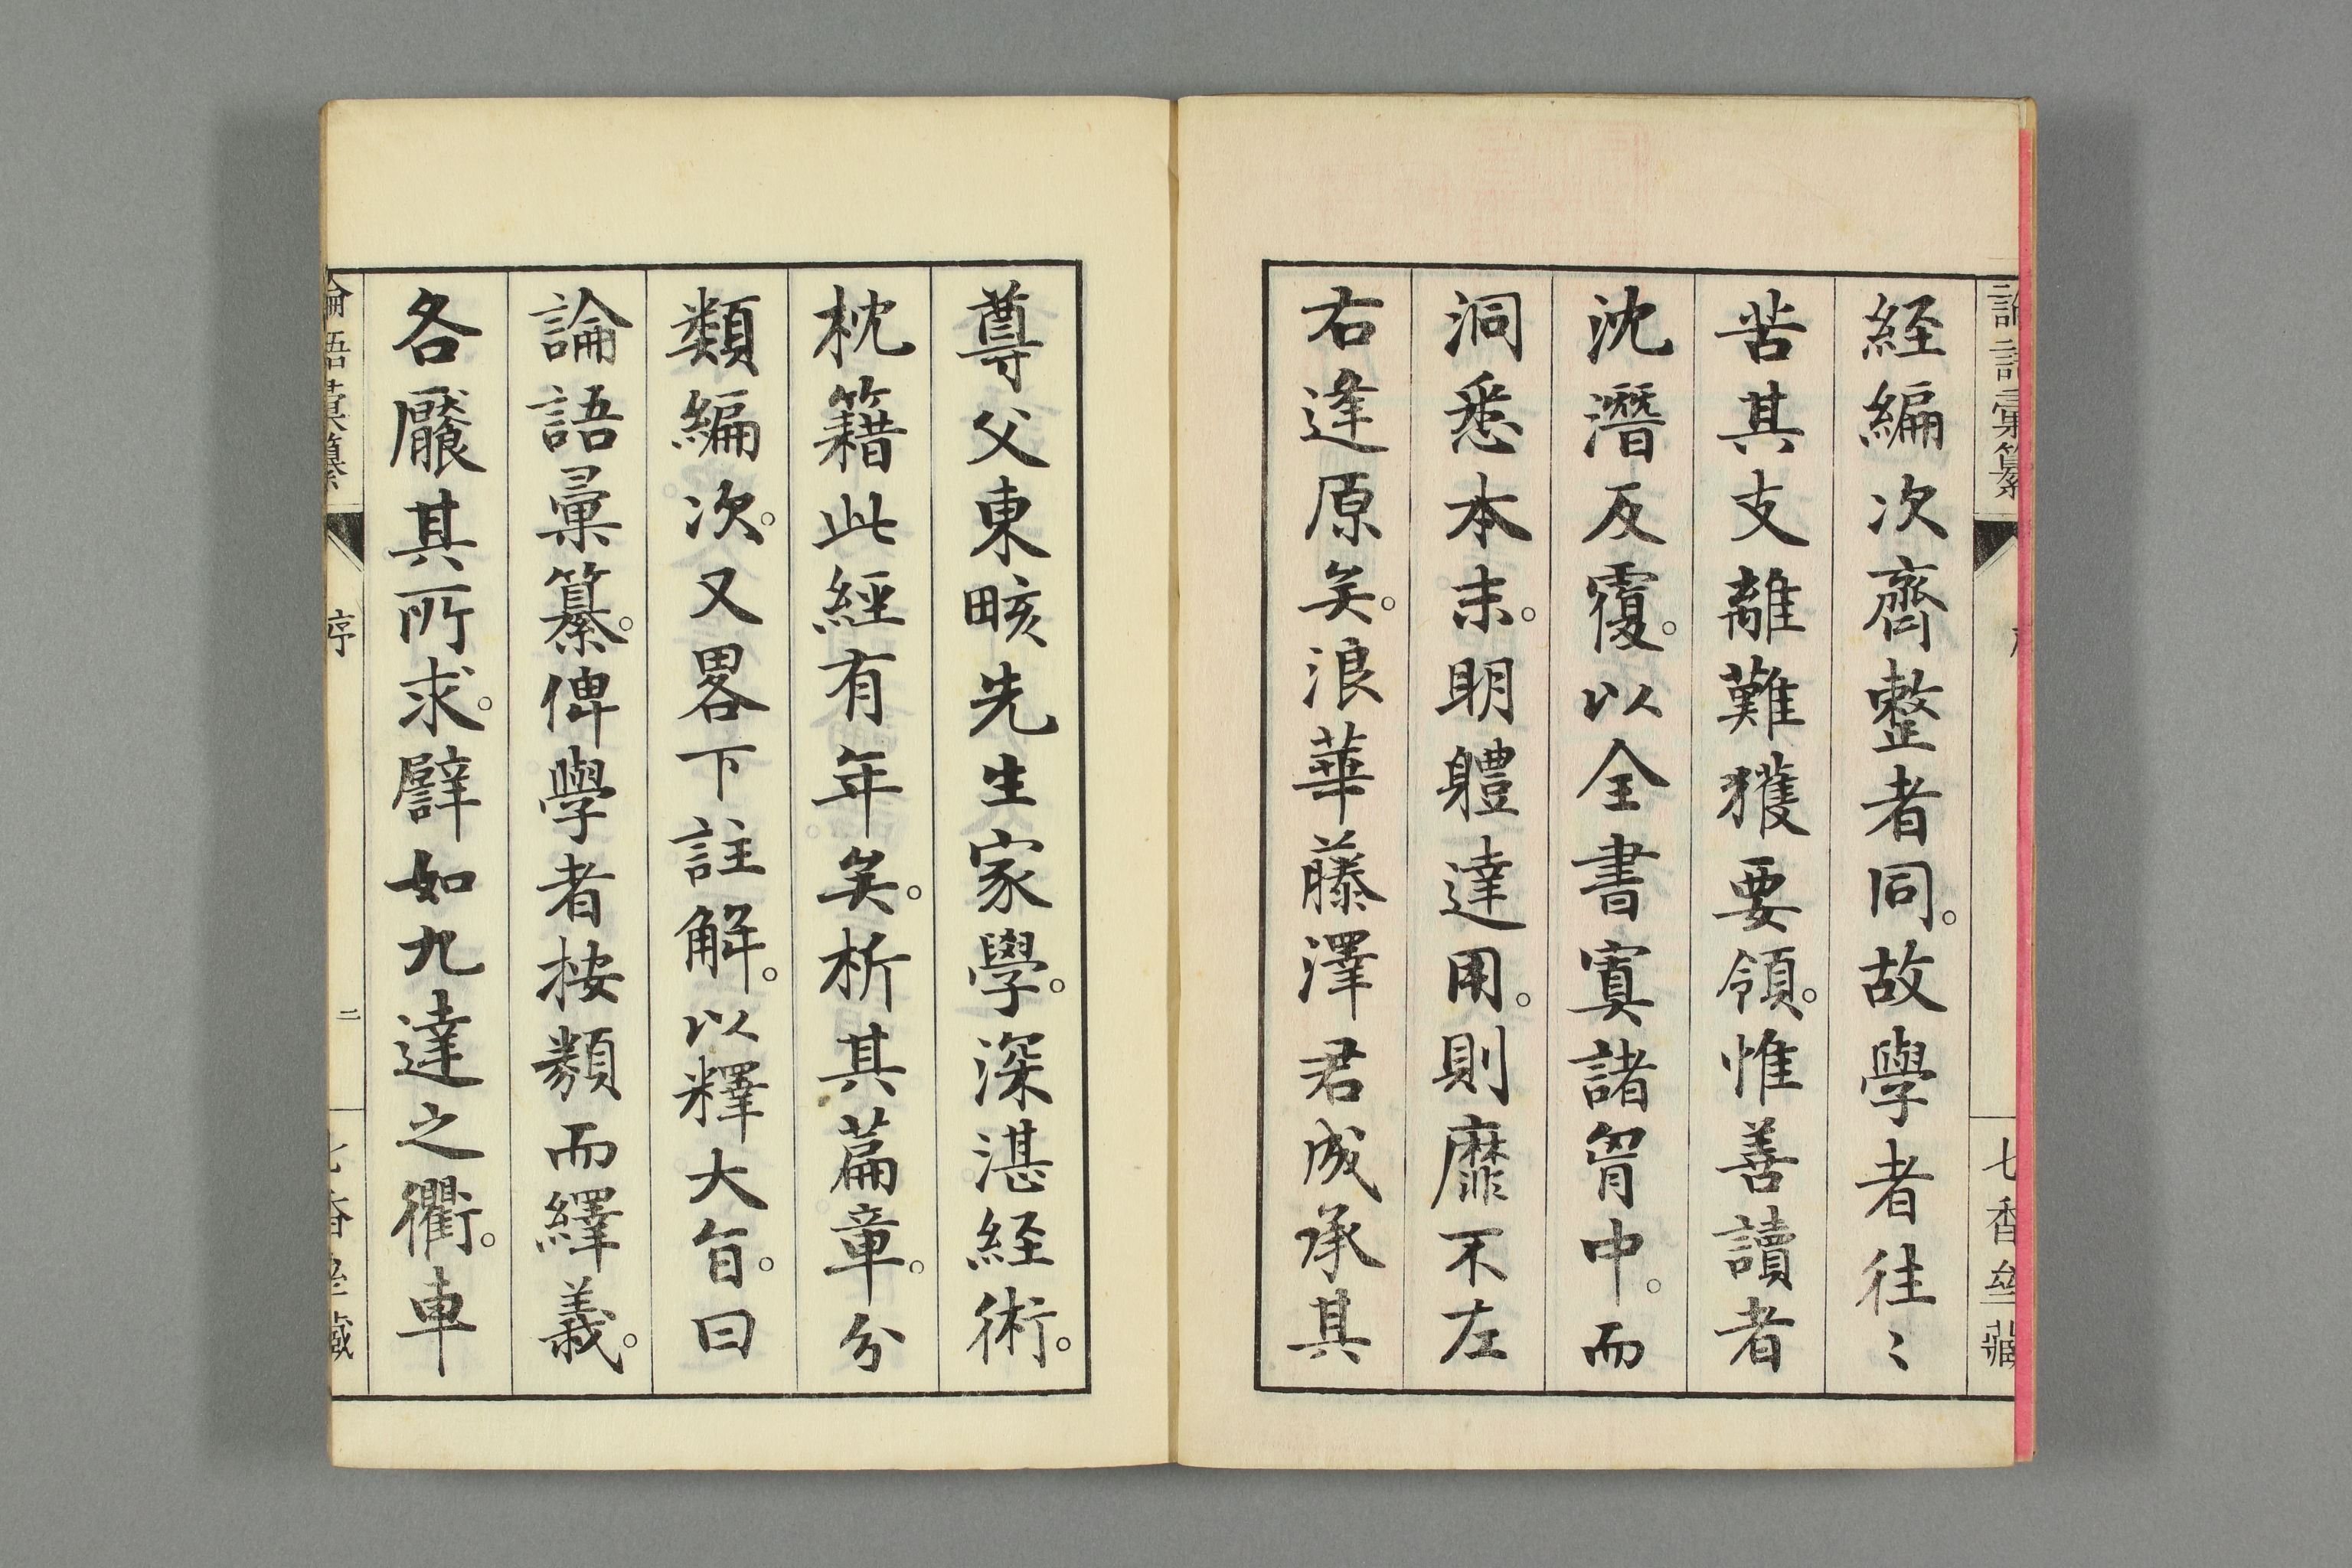 經編次齊整者同。故學者往〻
苦其支離難獲要領。惟善讀者
沈潛反覆。以全書寘諸胷中。而
洞悉本末。明體達用。則靡不左
右逢原矣。浪華藤澤君成承其
尊父東畡先生家學。深湛経術。
枕籍此經有年矣。析其篇章。分
類編次。又畧下註解。以釋大旨。曰
論語彙纂。俾學者按類而繹義。
各饜其所求。譬如九達之衢。車
論語彙纂
序
二
七香藏